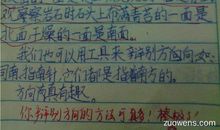 观察岩石的石头上布满青苔的一面是
北面干燥的一面是南面。
我们也可以用工具来辩别方向如
司南指南针,它们都是指南方的。
方向真有趣。
你辩别方向的方法可真多!棒极了!
zuowens.com